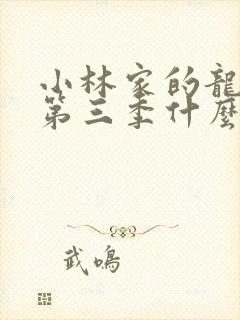 小林家的龍
第三季什麼
武鳴